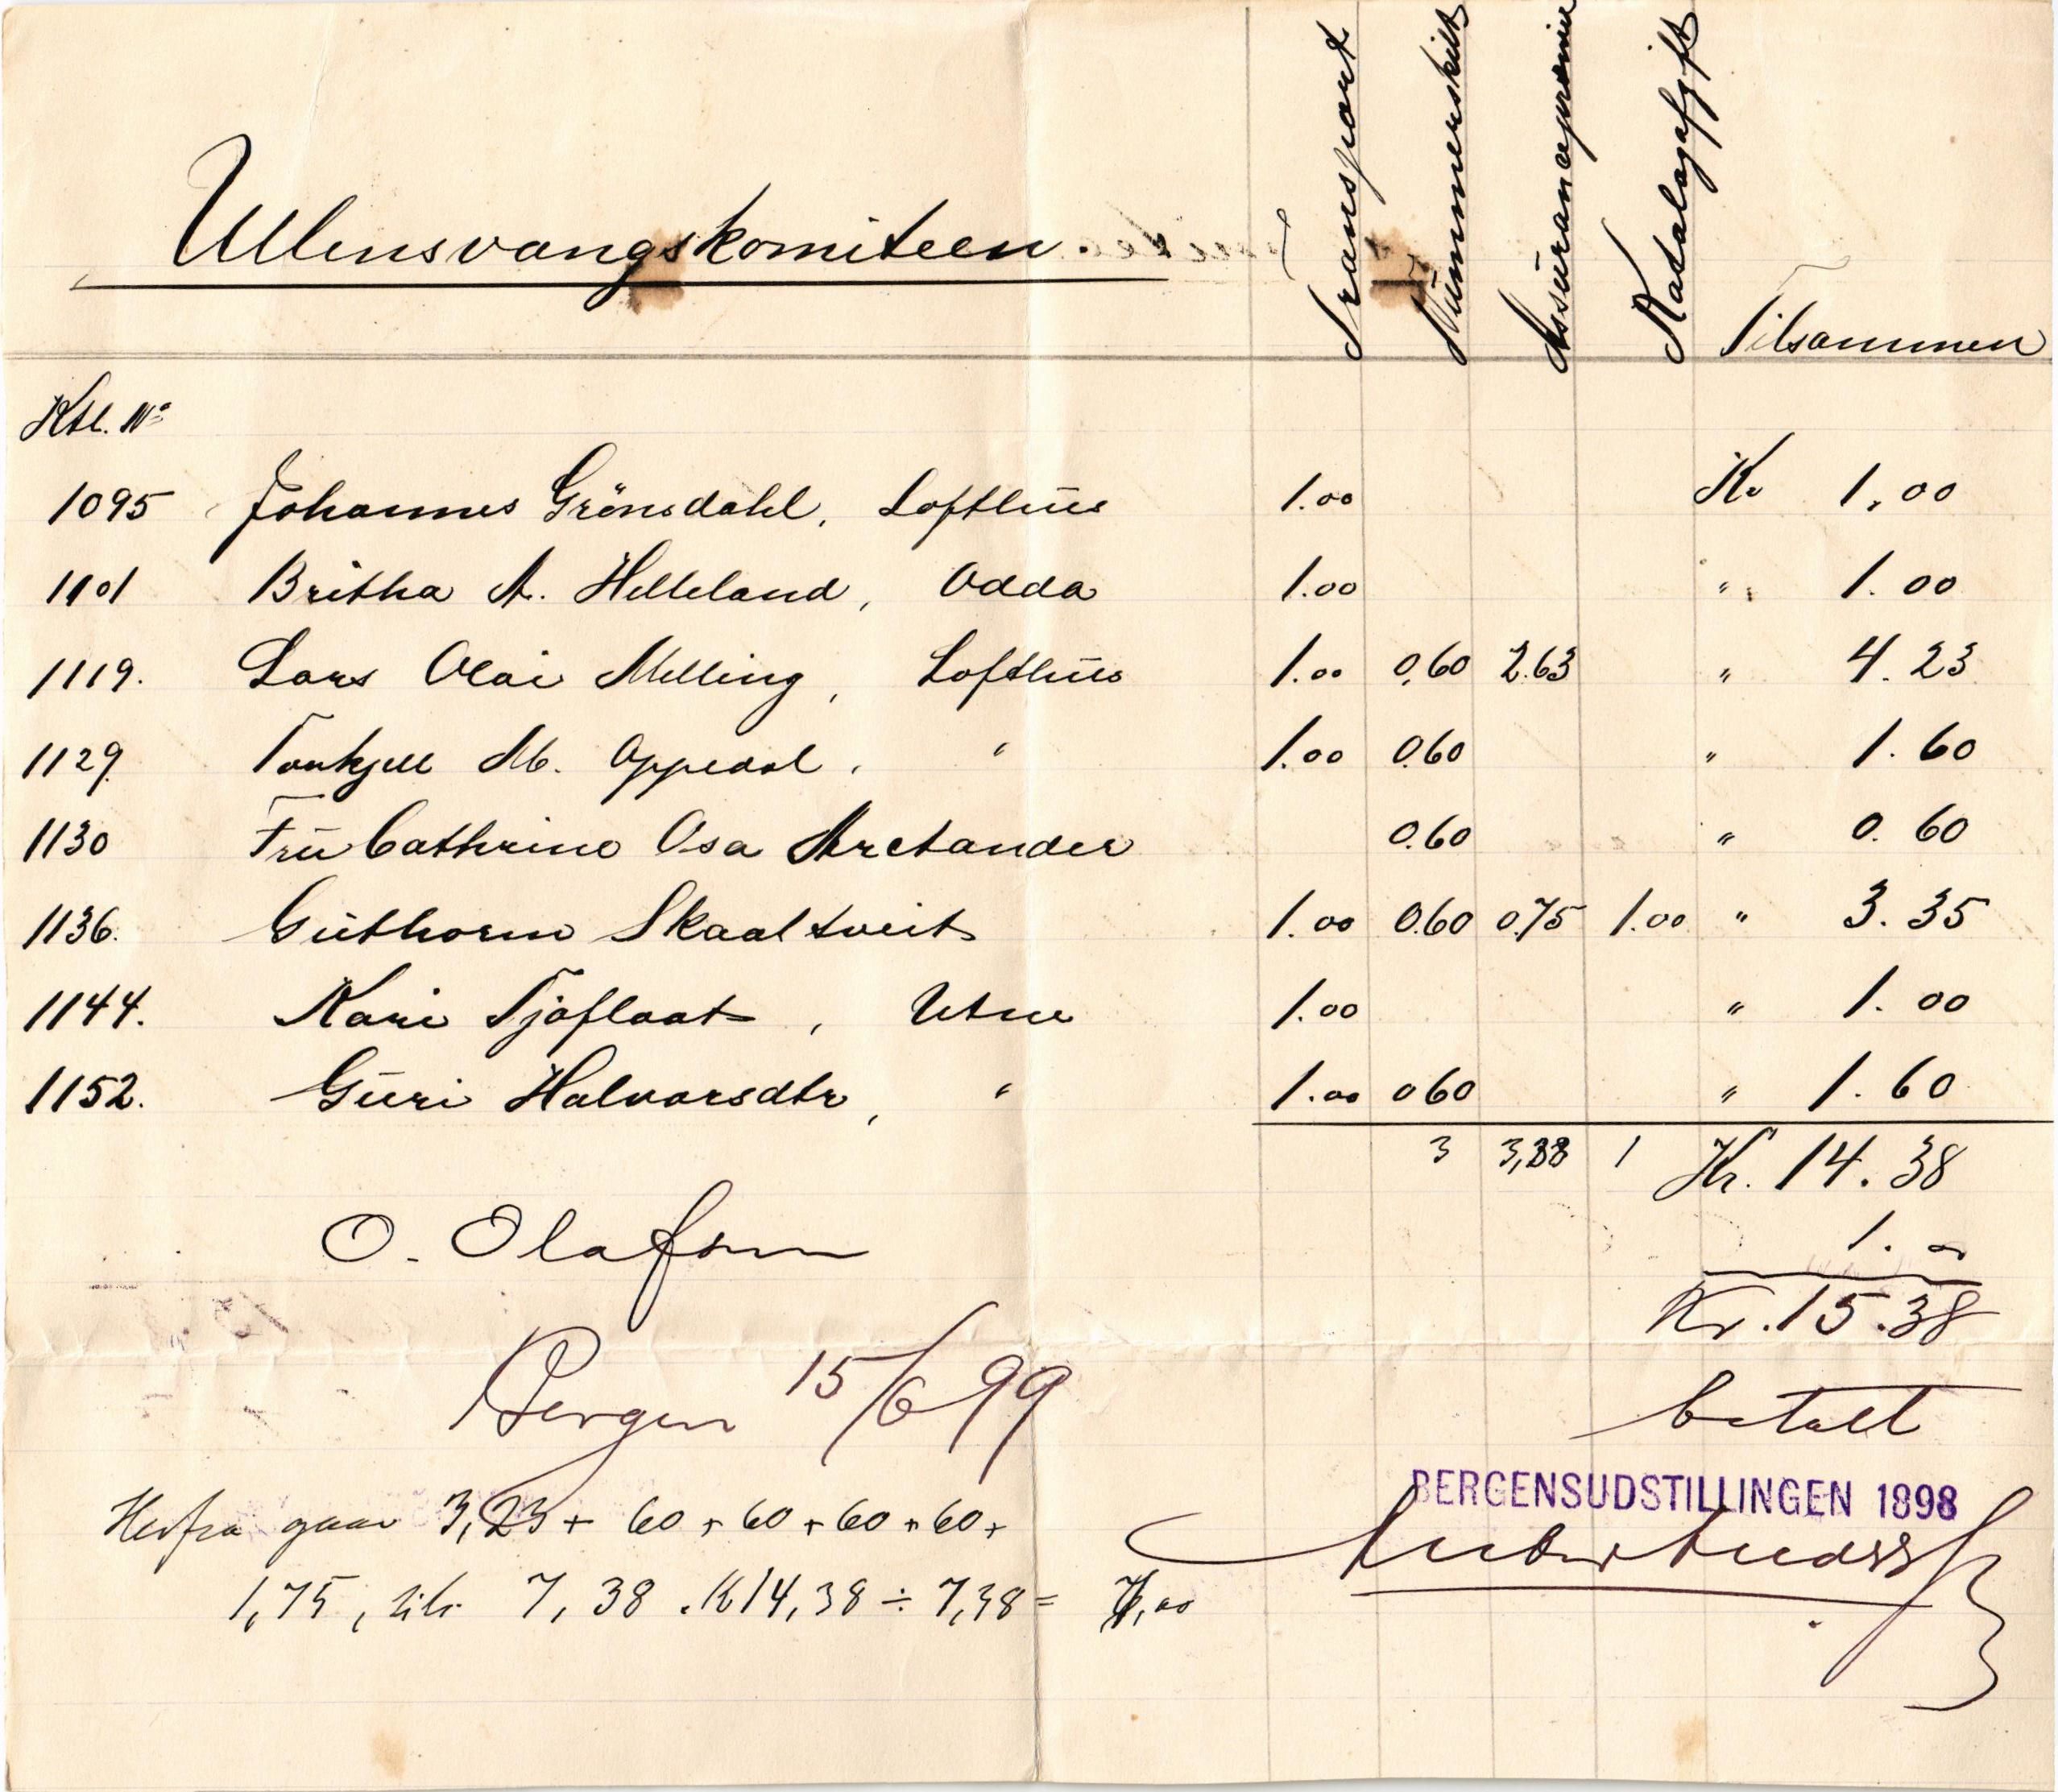 Ullensvangskomiteen.
Transport
Nummerskilt
Assurancepremie
Katalogafgift
Tilsammen
Ktl. No
1095 Johannes Grönsdahl, Lofthus 1.00 Kr 1.00
1101 Britha A. Helleland, Odda 1.00 " 1.00
1119. Lars Olai Melling, Lofthus 1.00 0.60 2.63 " 4.23
1129. Torkjell M. Oppedal, " 1.00 0.60 " 1.60
1130 Fru Cathrine Osa Arctander 0.60 " 0.60
1136. Guthorm Skaaltveit 1.00 0.60 0.75 1.00 " 3.35
1144. Kari Tjoflaat, Utne 1.00 " 1.00
1152. Guri Halvorsdtr, " 1.00 0.60 " 1.60
3 3,38 1 Kr. 14.38
1. 00
Kr. 15.38
O. Olafson
Bergen 15/6 99
betalt
BERGENSUDSTILLINGEN 1898
Herfra gaar 3,23 + 60 + 60 + 60 + 60 +
1,75, tils. 7,38. K 14,38 ÷ 7,38 = 7,00